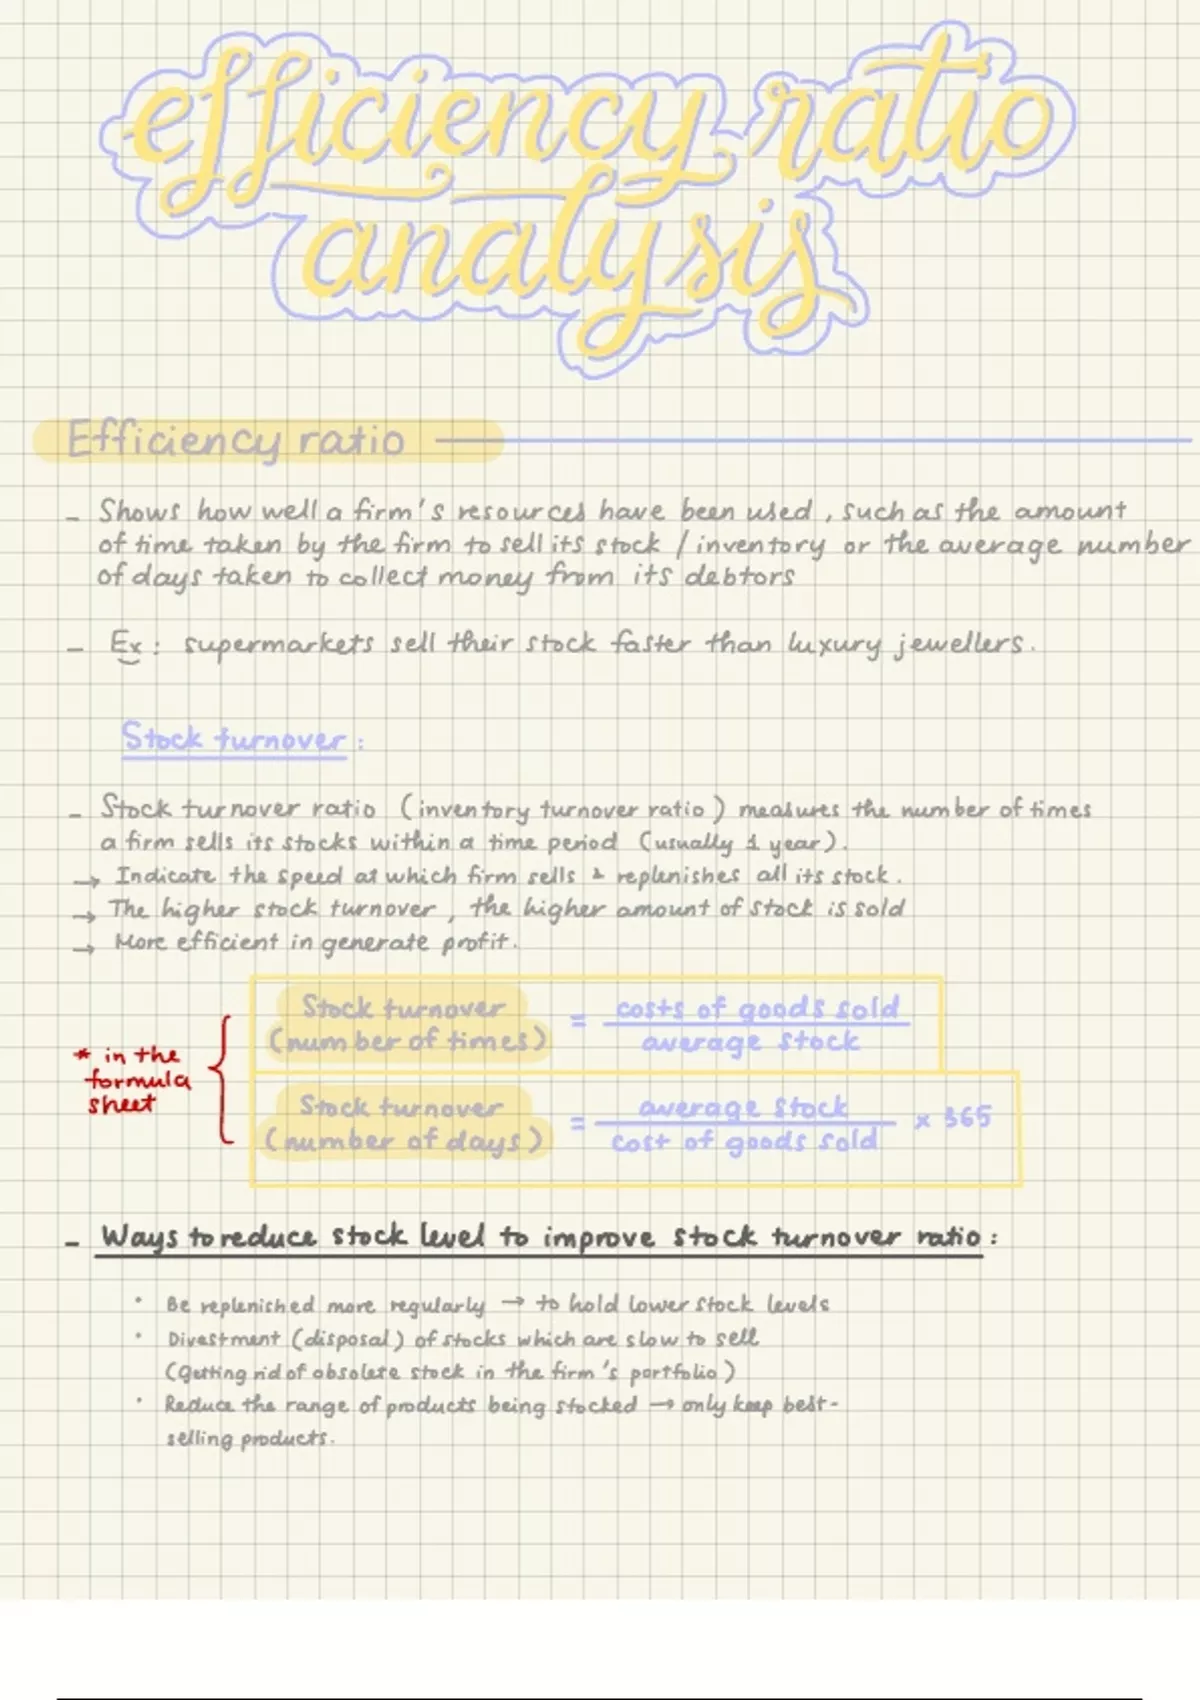 efficiency ratio
analysis
Efficiency ratio
- Shows how well a firm's resources have been used, such as the amount
of time taken by the firm to sell its stock / inventory or the average number
of days taken to collect money from its debtors
- Ex: supermarkets sell their stock faster than luxury jewellers.
Stock turnover:
- Stock turnover ratio (inventory turnover ratio) measures the number of times
a firm sells its stocks within a time period (usually 1 year).
→ Indicate the speed at which firm sells & replenishes all its stock.
→ The higher stock turnover, the higher amount of stock is sold
→ More efficient in generate profit.
* in the
formula
sheet
Stock turnover
(number of times)
=
costs of goods sold
average stock
Stock turnover
(number of days)
=
average stock
cost of goods sold
x 365
- Ways to reduce stock level to improve stock turnover ratio:
• Be replenished more regularly → to hold lower stock levels
• Divestment (disposal) of stocks which are slow to sell
(Getting rid of obsolete stock in the firm's portfolio)
• Reduce the range of products being stocked → only keep best-
selling products.